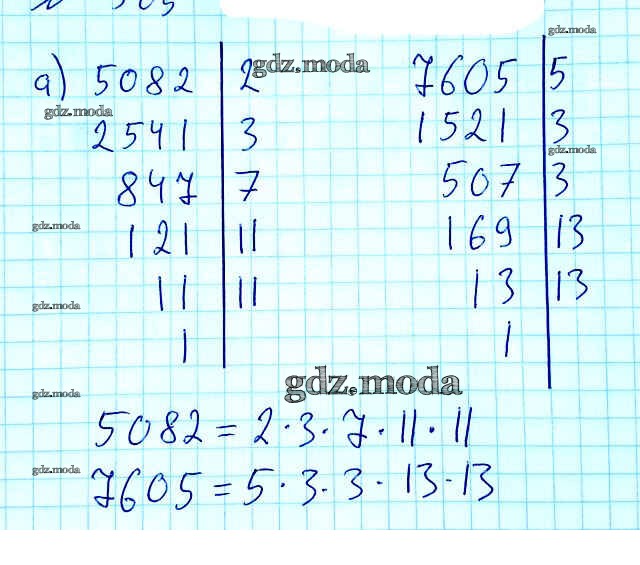 а) 5082 | 2 7605 | 5
2541 | 3 1521 | 3
847 | 7 507 | 3
121 | 11 169 | 13
11 | 11 13 | 13
1 1
5082 = 2 · 3 · 7 · 11 · 11
7605 = 5 · 3 · 3 · 13 · 13
gdz.moda
gdz.moda
gdz.moda
gdz.moda
gdz.moda
gdz.moda
gdz.moda
gdz.moda
gdz.moda